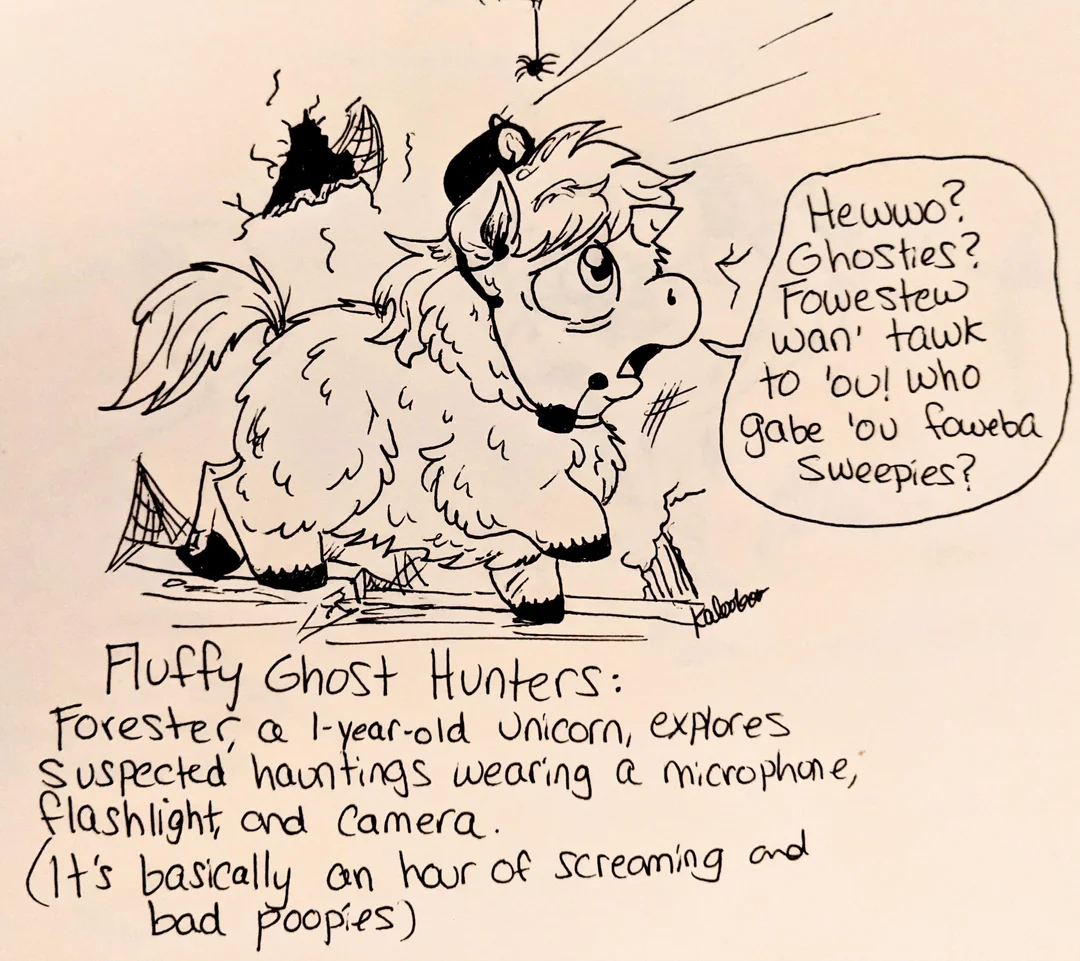 Hewwo?
Ghosties?
Fowestew
wan' tawk
to 'ou! who
gabe 'ou foweba
sweepies?
Kaloobar
Fluffy Ghost Hunters:
Forester, a 1-year-old unicorn, explores
suspected hauntings wearing a microphone,
flashlight, and camera.
(It's basically an hour of screaming and
bad poopies)